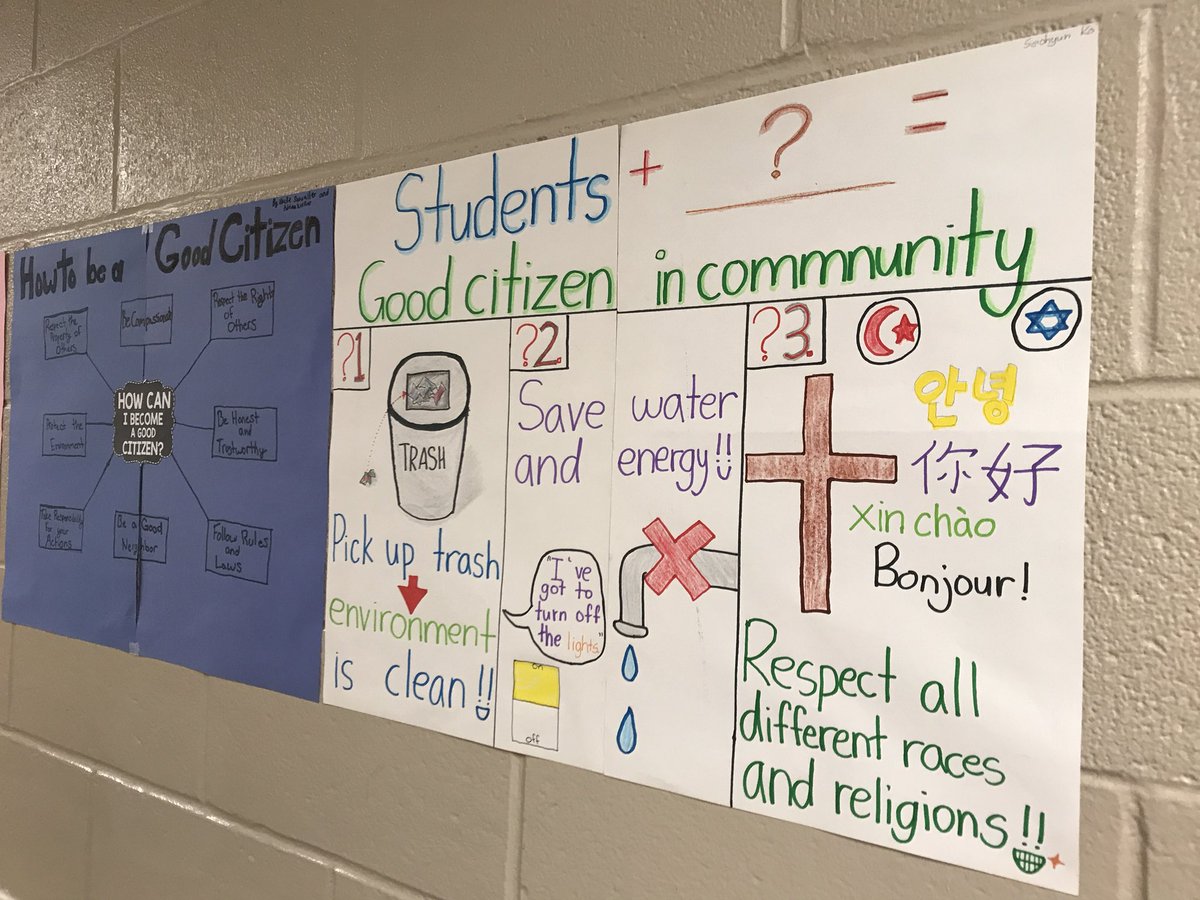 How to be a Good Citizen
Respect the
Property of
Others
Be Compassionate
Respect the Rights
of
Others
Protect the
Environment
HOW CAN
I BECOME
A GOOD
CITIZEN?
Be Honest
and
Trustworthy
Take Responsibility
For your
Actions
Be a Good
Neighbor
Follow Rules
and
Laws
Students + ? =
Good citizen in commnunity
?1
TRASH
Pick up trash
environment
is clean!!
?2.
Save water
and energy!!
"I've
got to
turn off
the lights."
on
off
?3.
안녕
你好
xin chào
Bonjour!
Respect all
different races
and religions!!